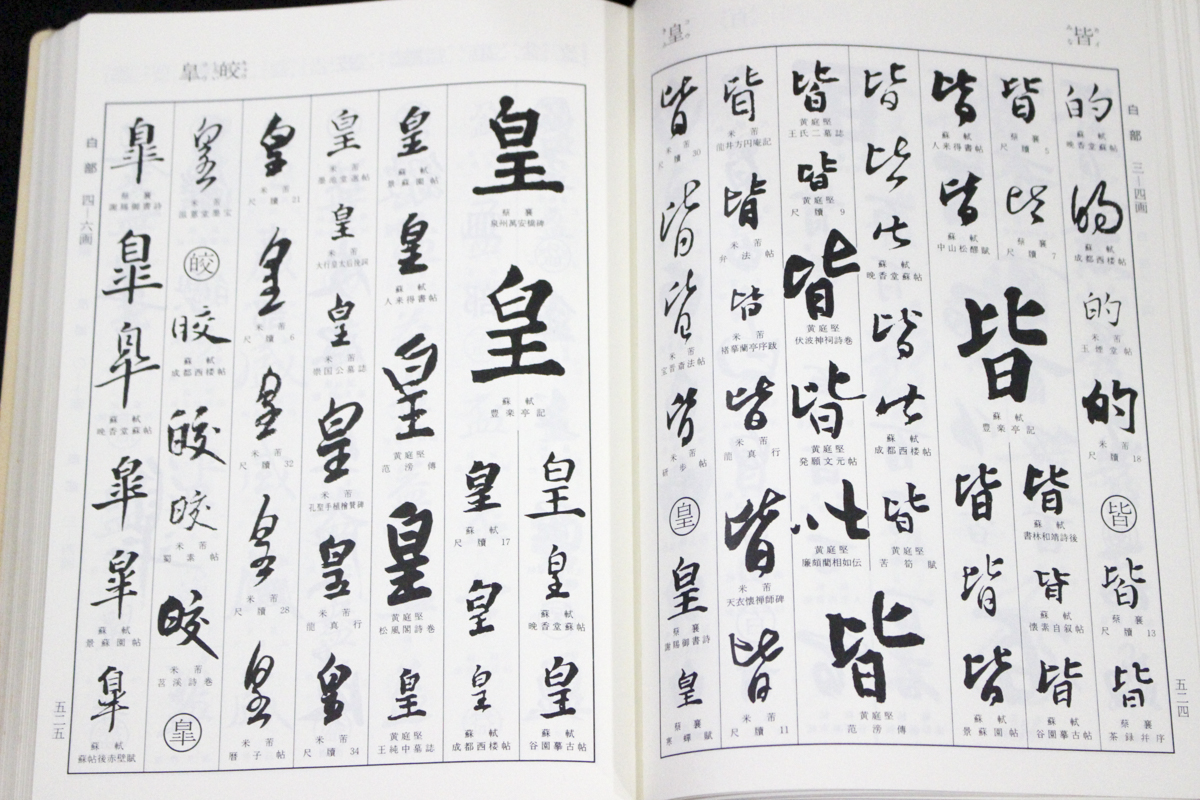 皆
皇
白部 三―四画
五二四
的
蘇軾
晩香堂蘇帖
的
蘇軾
成都西楼帖
的
玉煙堂帖
的
米芾
尺牘18
皆
皆
蔡襄
尺牘13
皆
蔡襄
茶録并序
皆
蔡襄
尺牘5
皆
蔡襄
尺牘7
皆
蘇軾
人来得書帖
皆
蘇軾
中山松醪賦
皆
蘇軾
豊楽亭記
皆
蘇軾
書林和靖詩後
皆
蘇軾
懐素自叙帖
皆
蘇軾
谷園摹古帖
皆
皆
皆
蘇軾
景蘇園帖
皆
皆
皆
蘇軾
晩香堂蘇帖
皆
皆
蘇軾
成都西楼帖
皆
黄庭堅
苦筍賦
皆
黄庭堅
王氏二墓誌
皆
黄庭堅
尺牘9
皆
黄庭堅
伏波神祠詩巻
皆
黄庭堅
発願文元帖
皆
黄庭堅
廉頗藺相如伝
皆
黄庭堅
范滂傳
皆
米芾
龍井方円庵記
皆
米芾
弁法帖
皆
米芾
褚摹蘭亭序跋
皆
米芾
龍真行
皆
米芾
天衣懐禅師碑
皆
米芾
尺牘11
皆
米芾
尺牘30
皆
皆
米芾
宝晋斎法帖
皆
米芾
研歩帖
皇
皇
蔡襄
謝賜御書詩
皇
蔡襄
寒蟬賦
皇皎
白部 四―六画
五二五
皇
蔡襄
泉州萬安橋碑
皇
蘇軾
豊楽亭記
皇
皇
蘇軾
晩香堂蘇帖
皇
蘇軾
谷園摹古帖
皇
蘇軾
尺牘17
皇
皇
蘇軾
成都西楼帖
皇
蘇軾
景蘇園帖
皇
蘇軾
人来得書帖
皇
黄庭堅
范滂傳
皇
黄庭堅
松風閣詩巻
皇
黄庭堅
王純中墓誌
皇
米芾
墨池堂選帖
皇
米芾
大行皇太后挽詞
皇
米芾
崇国公墓誌
皇
米芾
孔聖手植檜賛碑
皇
米芾
龍真行
皇
米芾
尺牘34
皇
米芾
尺牘21
皇
米芾
尺牘6
皇
米芾
尺牘32
皇
米芾
尺牘28
皇
米芾
暦子帖
皇
米芾
滋蕙堂墨宝
皎
皎
蘇軾
成都西楼帖
皎
皎
米芾
蜀素帖
皎
米芾
苕溪詩巻
皐
皐
蔡襄
謝賜御書詩
皐
皐
蘇軾
晩香堂蘇帖
皐
皐
蘇軾
景蘇園帖
皐
蘇軾
蘇帖後赤壁賦